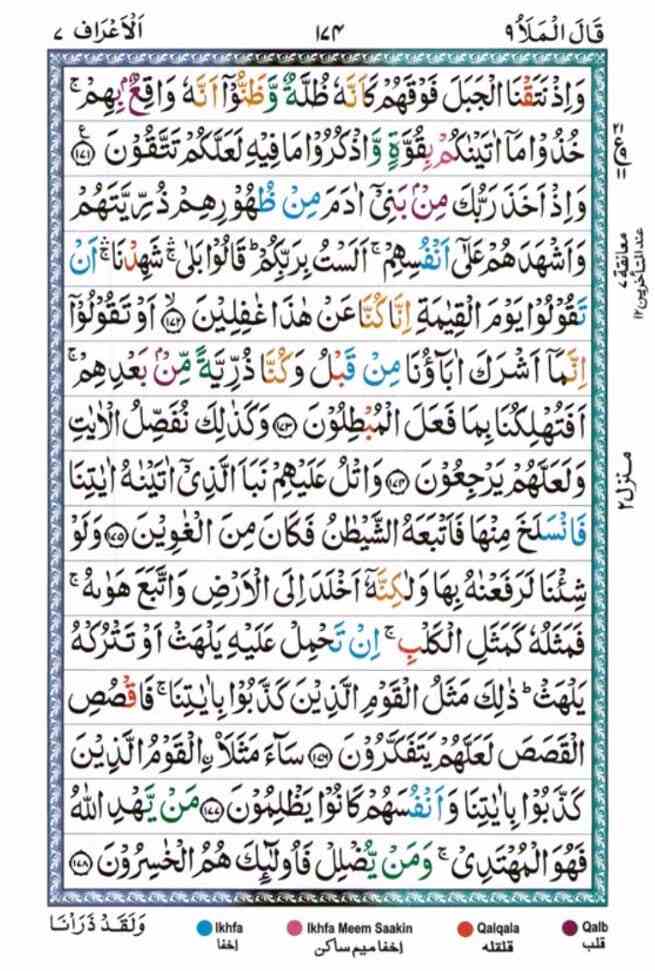 قَالَ الْمَلَاُ ٩
١٧٤
اَلْاَعْرَاف ٧
وَاِذْ نَتَقْنَا الْجَبَلَ فَوْقَهُمْ كَاَنَّهٗ ظُلَّةٌ وَّظَنُّوْۤا اَنَّهٗ وَاقِعٌۢ بِهِمْ ۚ
خُذُوْا مَاۤ اٰتَيْنٰكُمْ بِقُوَّةٍ وَّاذْكُرُوْا مَا فِيْهِ لَعَلَّكُمْ تَتَّقُوْنَ ﴿١٧١﴾ ع
وَاِذْ اَخَذَ رَبُّكَ مِنْۢ بَنِيْۤ اٰدَمَ مِنْ ظُهُوْرِهِمْ ذُرِّيَّتَهُمْ
وَاَشْهَدَهُمْ عَلٰۤى اَنْفُسِهِمْ ۚ اَلَسْتُ بِرَبِّكُمْ ؕ قَالُوْا بَلٰى ۛۚ شَهِدْنَا ۛۚ اَنْ
تَقُوْلُوْا يَوْمَ الْقِيٰمَةِ اِنَّا كُنَّا عَنْ هٰذَا غٰفِلِيْنَ ۙ﴿١٧٢﴾ اَوْ تَقُوْلُوْۤا
اِنَّمَاۤ اَشْرَكَ اٰبَآؤُنَا مِنْ قَبْلُ وَكُنَّا ذُرِّيَّةً مِّنْۢ بَعْدِهِمْ ۚ
اَفَتُهْلِكُنَا بِمَا فَعَلَ الْمُبْطِلُوْنَ ﴿١٧٣﴾ وَكَذٰلِكَ نُفَصِّلُ الْاٰيٰتِ
وَلَعَلَّهُمْ يَرْجِعُوْنَ ﴿١٧٤﴾ وَاتْلُ عَلَيْهِمْ نَبَاَ الَّذِيْۤ اٰتَيْنٰهُ اٰيٰتِنَا
فَانْسَلَخَ مِنْهَا فَاَتْبَعَهُ الشَّيْطٰنُ فَكَانَ مِنَ الْغٰوِيْنَ ﴿١٧٥﴾ وَلَوْ
شِئْنَا لَرَفَعْنٰهُ بِهَا وَلٰكِنَّهٗۤ اَخْلَدَ اِلَى الْاَرْضِ وَاتَّبَعَ هَوٰىهُ ۚ
فَمَثَلُهٗ كَمَثَلِ الْكَلْبِ ۚ اِنْ تَحْمِلْ عَلَيْهِ يَلْهَثْ اَوْ تَتْرُكْهُ
يَلْهَثْ ؕ ذٰلِكَ مَثَلُ الْقَوْمِ الَّذِيْنَ كَذَّبُوْا بِاٰيٰتِنَا ۚ فَاقْصُصِ
الْقَصَصَ لَعَلَّهُمْ يَتَفَكَّرُوْنَ ﴿١٧٦﴾ سَآءَ مَثَلَاۨ الْقَوْمُ الَّذِيْنَ
كَذَّبُوْا بِاٰيٰتِنَا وَاَنْفُسَهُمْ كَانُوْا يَظْلِمُوْنَ ﴿١٧٧﴾ مَنْ يَّهْدِ اللّٰهُ
فَهُوَ الْمُهْتَدِيْ ۚ وَمَنْ يُّضْلِلْ فَاُولٰٓئِكَ هُمُ الْخٰسِرُوْنَ ﴿١٧٨﴾
ع
١١
معانقة ٧
عند المتأخرين ١٢
منزل ٢
وَلَقَدْ ذَرَاْنَا
Ikhfa
اخفا
Ikhfa Meem Saakin
اخفا ميم ساكن
Qalqala
قلقله
Qalb
قلب